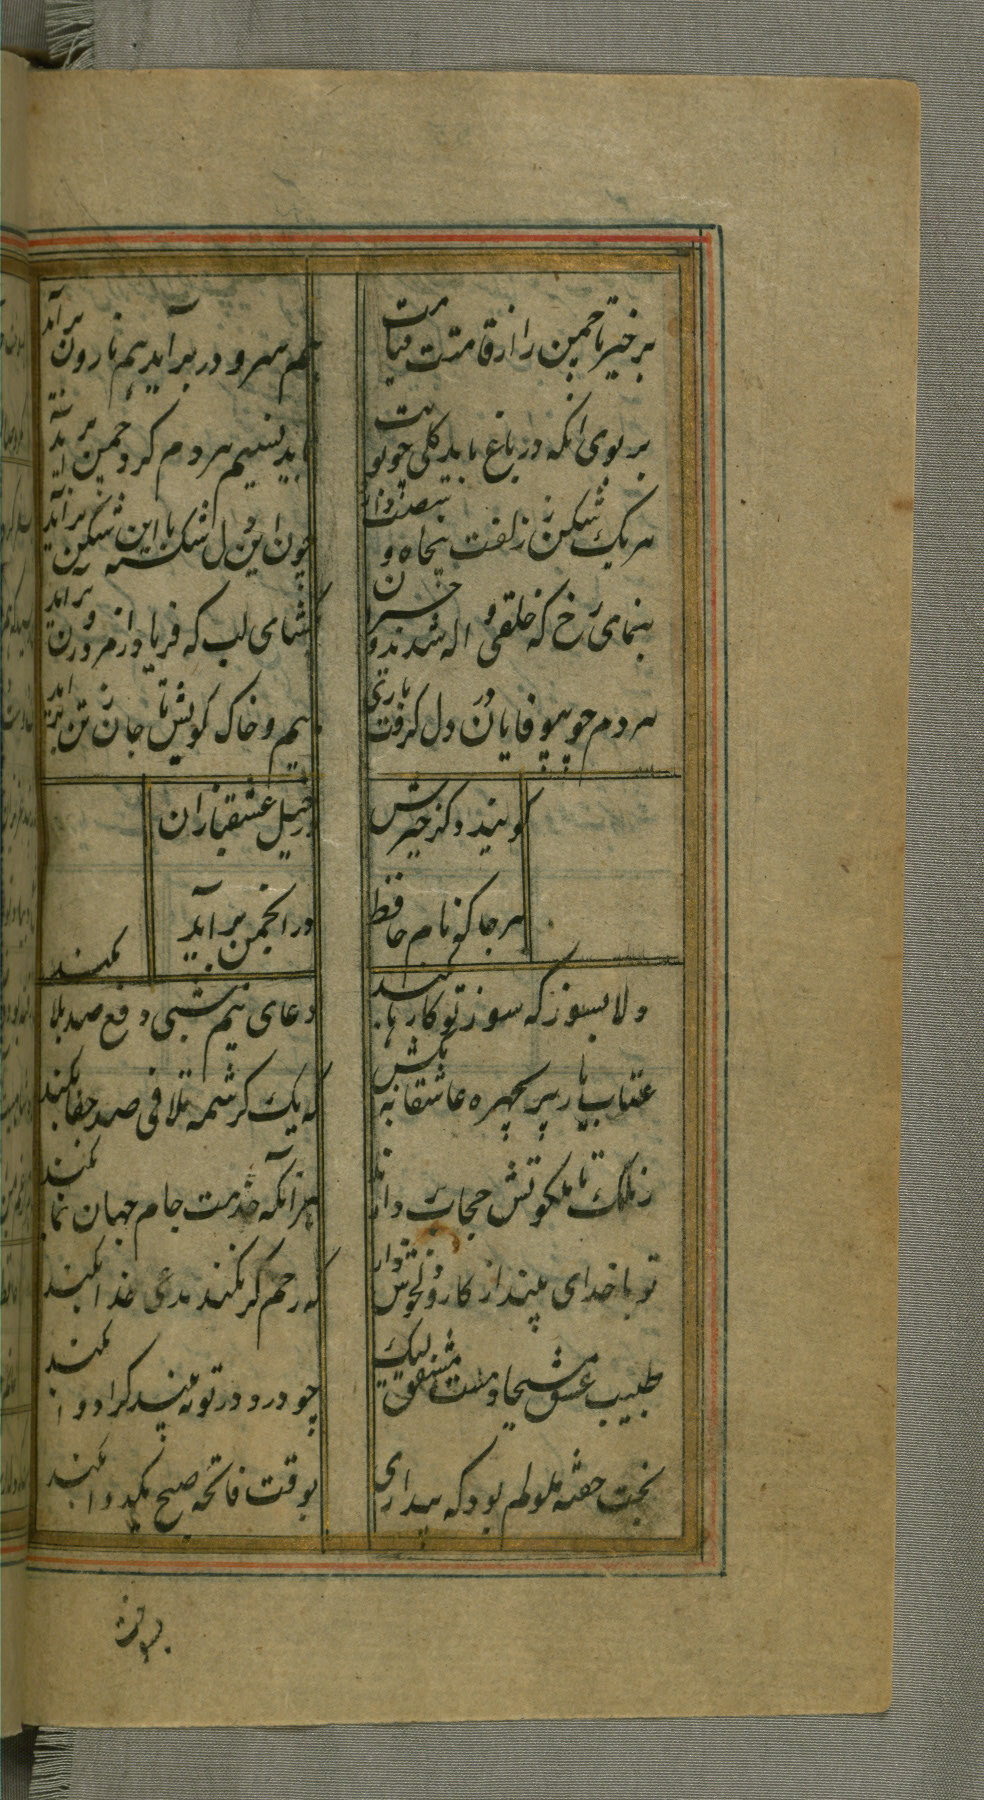 برخیز تا چمن را از قامت قیامت
هم سرو در بر آید هم نارون برآید
بر بوی آنکه در باغ یابد گلی چو رویت
آید نسیم هر دم گرد چمن برآید
هر یک شکن ز زلفت پنجاه و شصت دارد
چون این دل شکسته با این شکن برآید
بنمای رخ که خلقی واله شوند و حیران
بگشای لب که فریاد از مرد و زن برآید
هر دم چو بیوفایان دل گرفت یاری
مائیم و خاک کویش تا جان ز تن برآید
گویند ذکر خیرش
خیل عشقبازان
هر جا که نام حافظ
در انجمن برآید
دلا بسوز که سوز تو کارها بکند
دعای نیم شبی دفع صد بلا بکند
عتاب یار پریچهره عاشقانه بکش
که یک کرشمه تلافی صد جفا بکند
ز ملک تا ملکوتش حجاب بردارند
هر آنکه خدمت جام جهان نما بکند
تو با خدای انداز کار و دل خوش دار
که رحم گر نکند مدعی خدا بکند
طبیب عشق مسیحا دمست و مشفق لیک
چو درد در تو نه بیند کرا دوا بکند
بخت خفته ملولم بود که بیداری
بوقت فاتحه صبح یکدعا بکند
بسوخت